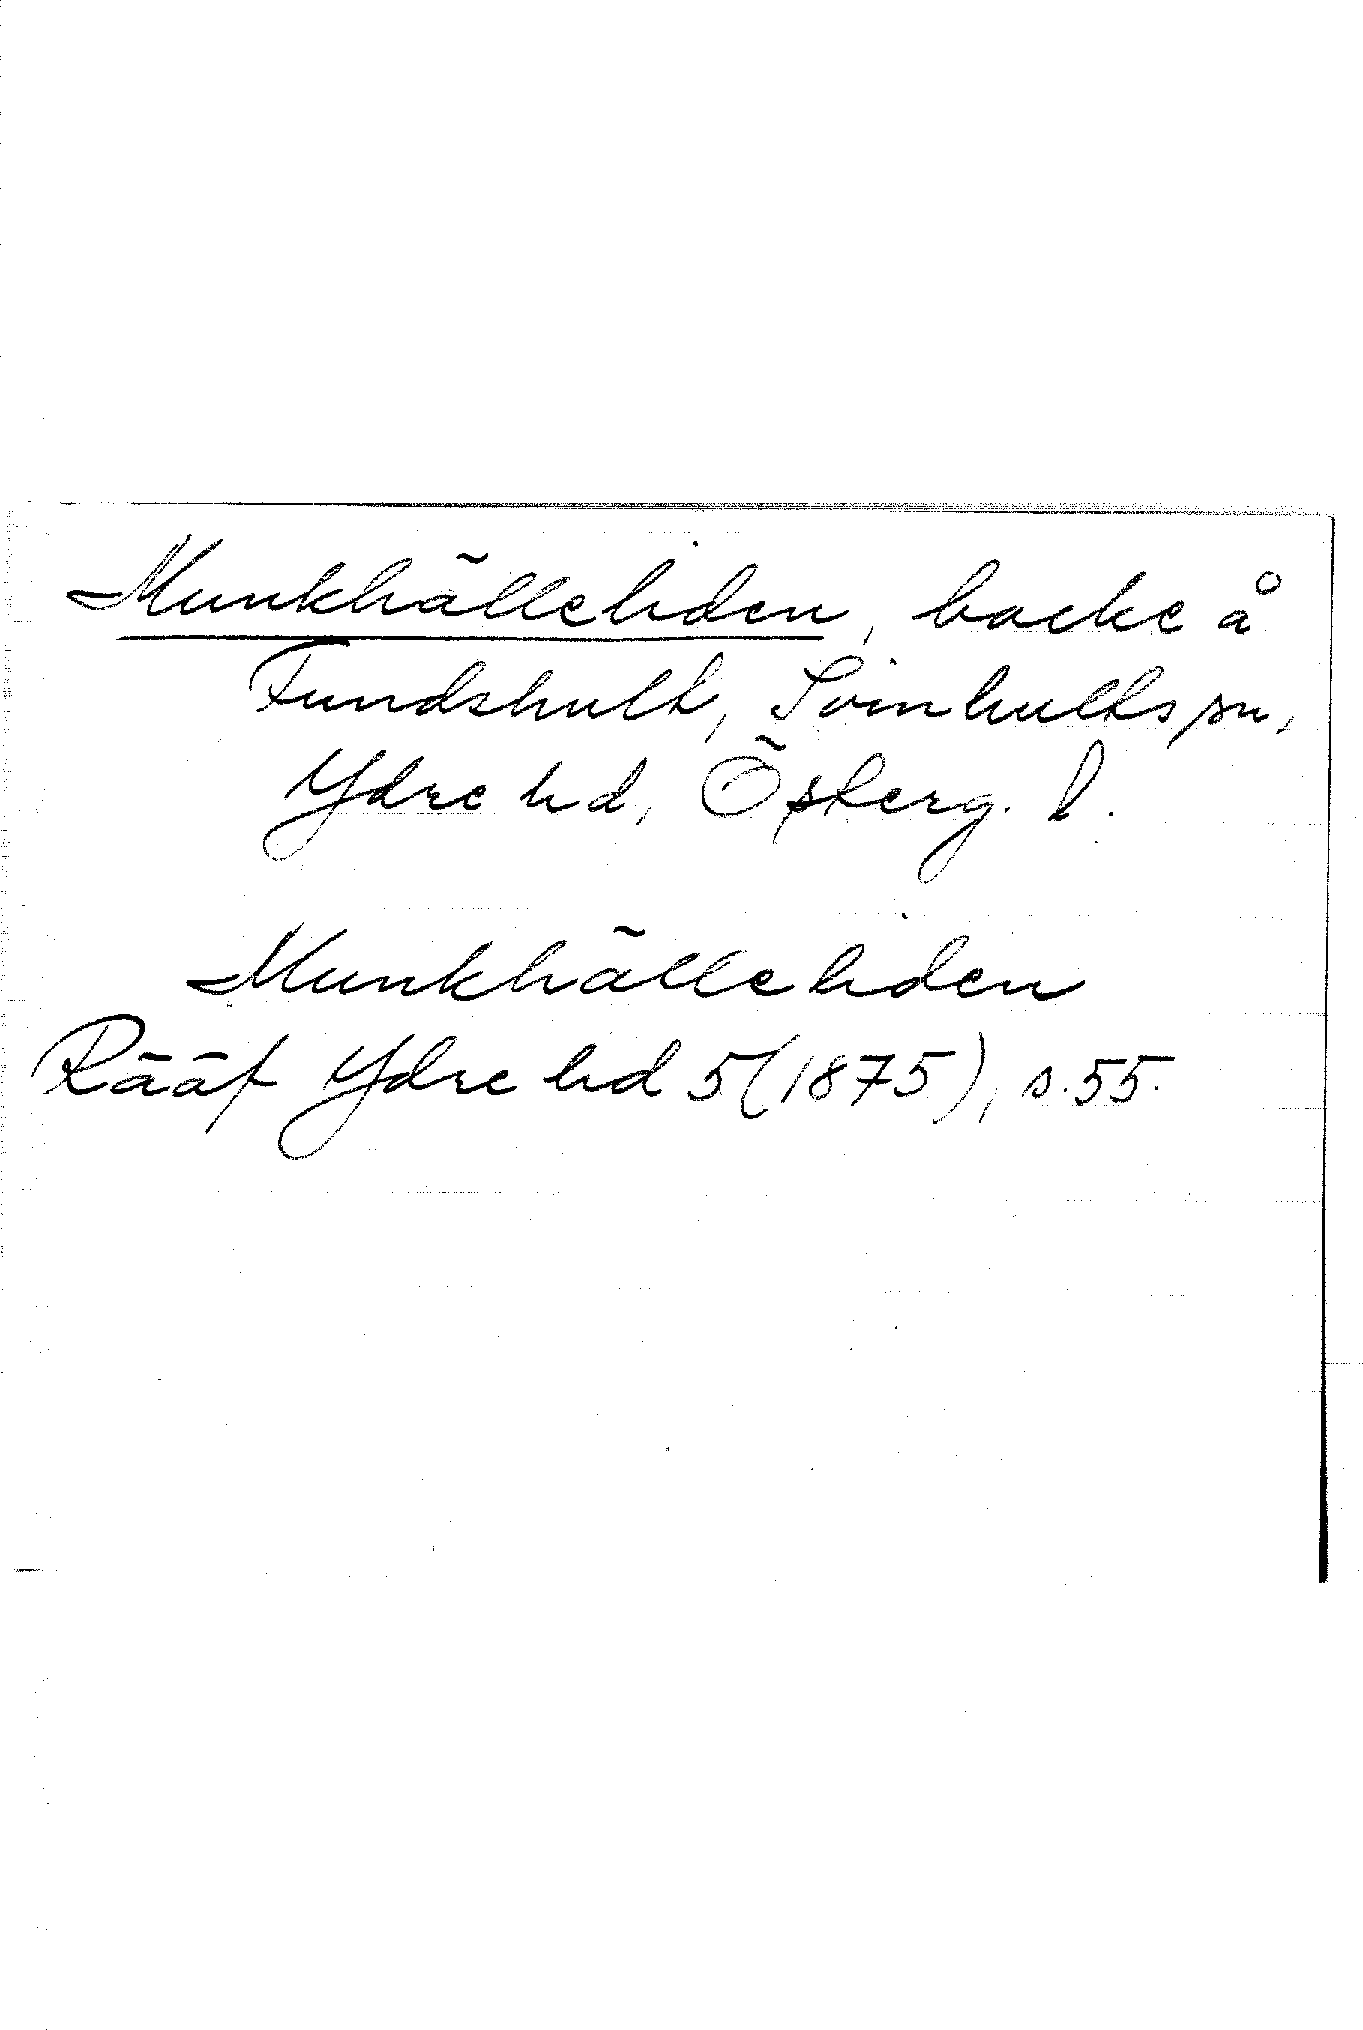 Munkhälleliden, backe å
Fundshult, Svinhults sn,
Ydre hd, Österg. l.
Munkhälleliden
Rääf Ydre hd 5 (1875), s. 55.